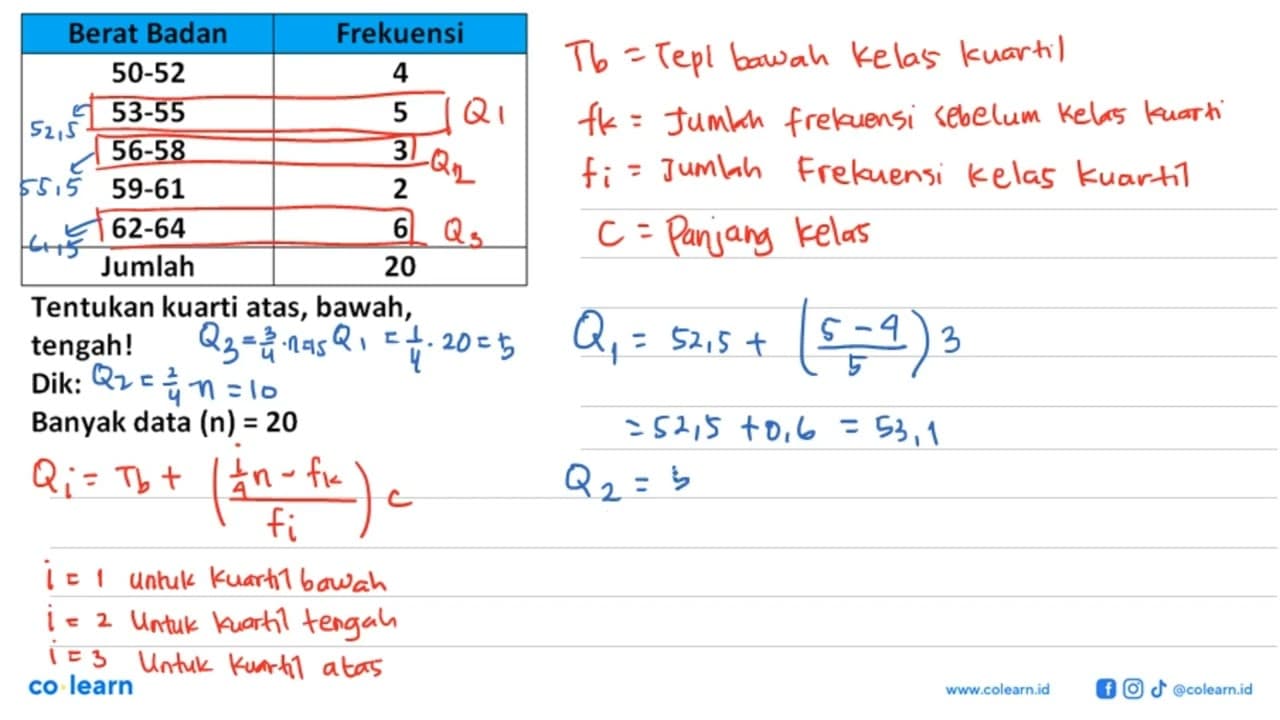 Berat Badan Frekuensi
50-52 4
53-55 5 Q1
52,5
56-58 3 Q2
55,5 59-61 2
62-64 6 Q3
61,5
Jumlah 20
Tentukan kuarti atas, bawah,
tengah! Q3 = 3/4 . n Q1 = 1/4 . 20 = 5
Dik: Q2 = 2/4 n = 10
Banyak data (n) = 20
Qi = Tb + ( (i/4 n - fk) / fi ) c
i = 1 untuk kuartil bawah
i = 2 Untuk kuartil tengah
i = 3 Untuk kuartil atas
Tb = Tepi bawah kelas kuartil
fk = Jumlah frekuensi sebelum kelas kuarti
fi = Jumlah Frekuensi kelas kuartil
C = Panjang kelas
Q1 = 52,5 + ( (5 - 4) / 5 ) 3
= 52,5 + 0,6 = 53,1
Q2 = 5
co learn
www.colearn.id @colearn.id